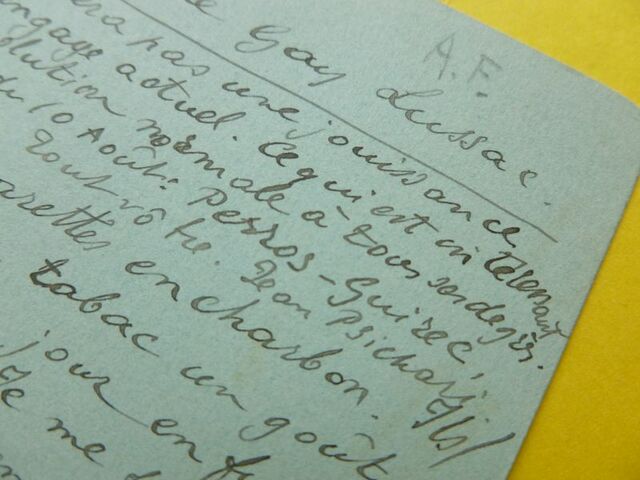 A.F.
Gay Lussac.
pas une jouissance
engage actuel. Ce qui est intéressant
olution normale à tous ses degrés.
du 10 Août: Perros-Guirec,
tout vôtre. Jean Psichari
arettes en charbon.
tabac un goût
jour en fu
Je me